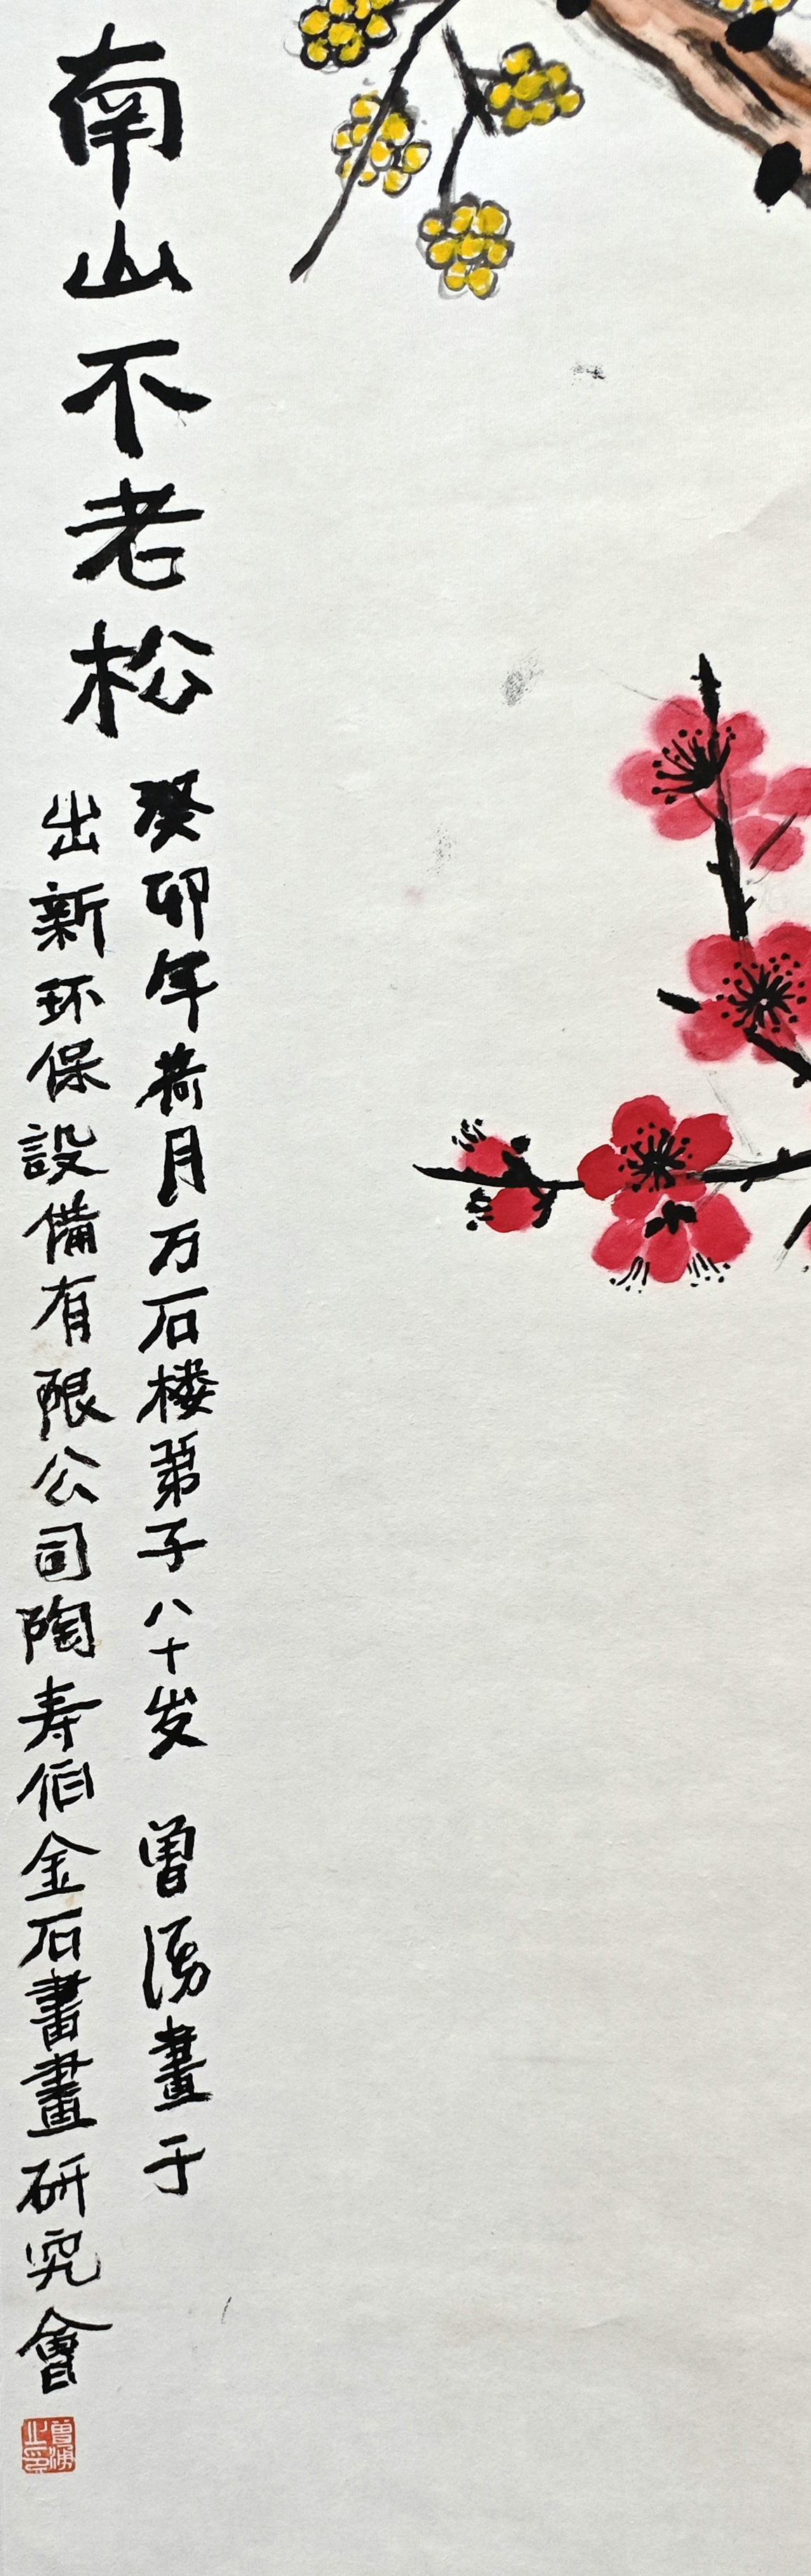 南山不老松
癸卯年荷月万石楼弟子八十岁 曾湧畫于
出新环保設備有限公司陶寿伯金石書畫研究會